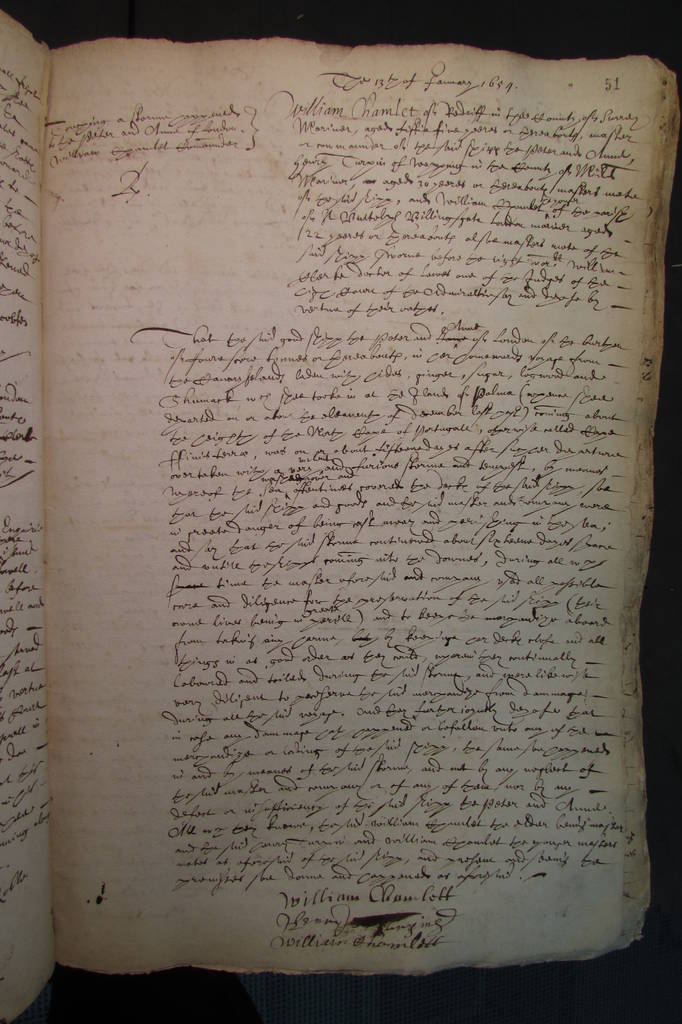 The 13th of January 1654.
51
Touching a storme happened
to the Peter and Anne of London.
William Chamlet Comander
William Chamlet of Redriff in the County of Surrey
Mariner, aged fiftie five yeeres or thereabouts, master
or commander of the said shipp the Peter and Anne,
Henry Turpin of Wapping in the County of Midd
Mariner, aged 30 yeeres or thereabouts masters mate
of the said shipp, and William Chamlet younger of the parish
of St Buttolph Billingsgate London mariner aged
22 yeeres or thereabouts alsoe masters mate of the
said shipp sworne before the right William
Clerke doctor of Lawes one of the Judges of the
high Court of the Admiraltie say and depose by
vertue of their oathes.
That the said good shipp the Peter and Anne of London of the burthen
of foure score tonnes or thereabouts, in her homewards voyage from
the Canarie Islands laden with hides, ginger, sugar, logwood and
Shumack which shee tooke in at the Island of Palma (whence shee
departed on or about the eleaventh of December last past) coming about
the heighth of the North Cape of Portugall, otherwise called Cape
Finisterra, was on or about fifteene dayes after such her departure
overtaken with a violent and furious storme and tempest, by meanes
whereof the sea washed over and oftentimes covered the decks of the said shipp, soe
that the said shipp and goods and the said master and company were
in greate danger of being cast away and perishing in the sea;
and say that the said storme continued about sixteene dayes space
and untill the shipps comming into the Downes, during all which
time the master aforesaid and company used all possible
care and diligence for the preservation of the said shipp (their
owne lives being in greate perill) and to keepe the merchandize aboard
from takeing any harme, by keeping her decks close and all
things in as good order as they could, wherein they continually
laboured and toiled during the said storme, and were likewise
very diligent to preserve the said merchandize from dammage
during all the said voyage. And they further joyntly depose that
in case any dammage hath happened or befallen unto any of the
merchandize or lading of the said shipp, the same soe happened
in and by meanes of the said storme, and not by any neglect of
the said master and company or of any of them nor by any
defect or insufficiency of the said shipp the Peter and Anne.
All which they knowe, the said William Chamlet the elder being master
and the said Henry Turpin and William Chamlet the younger masters
mates as aforesaid of the said shipp, and present and seeing the
premisses soe donne and happened as aforesaid.
William Chamlett
Henry Turpin
William Chamlett